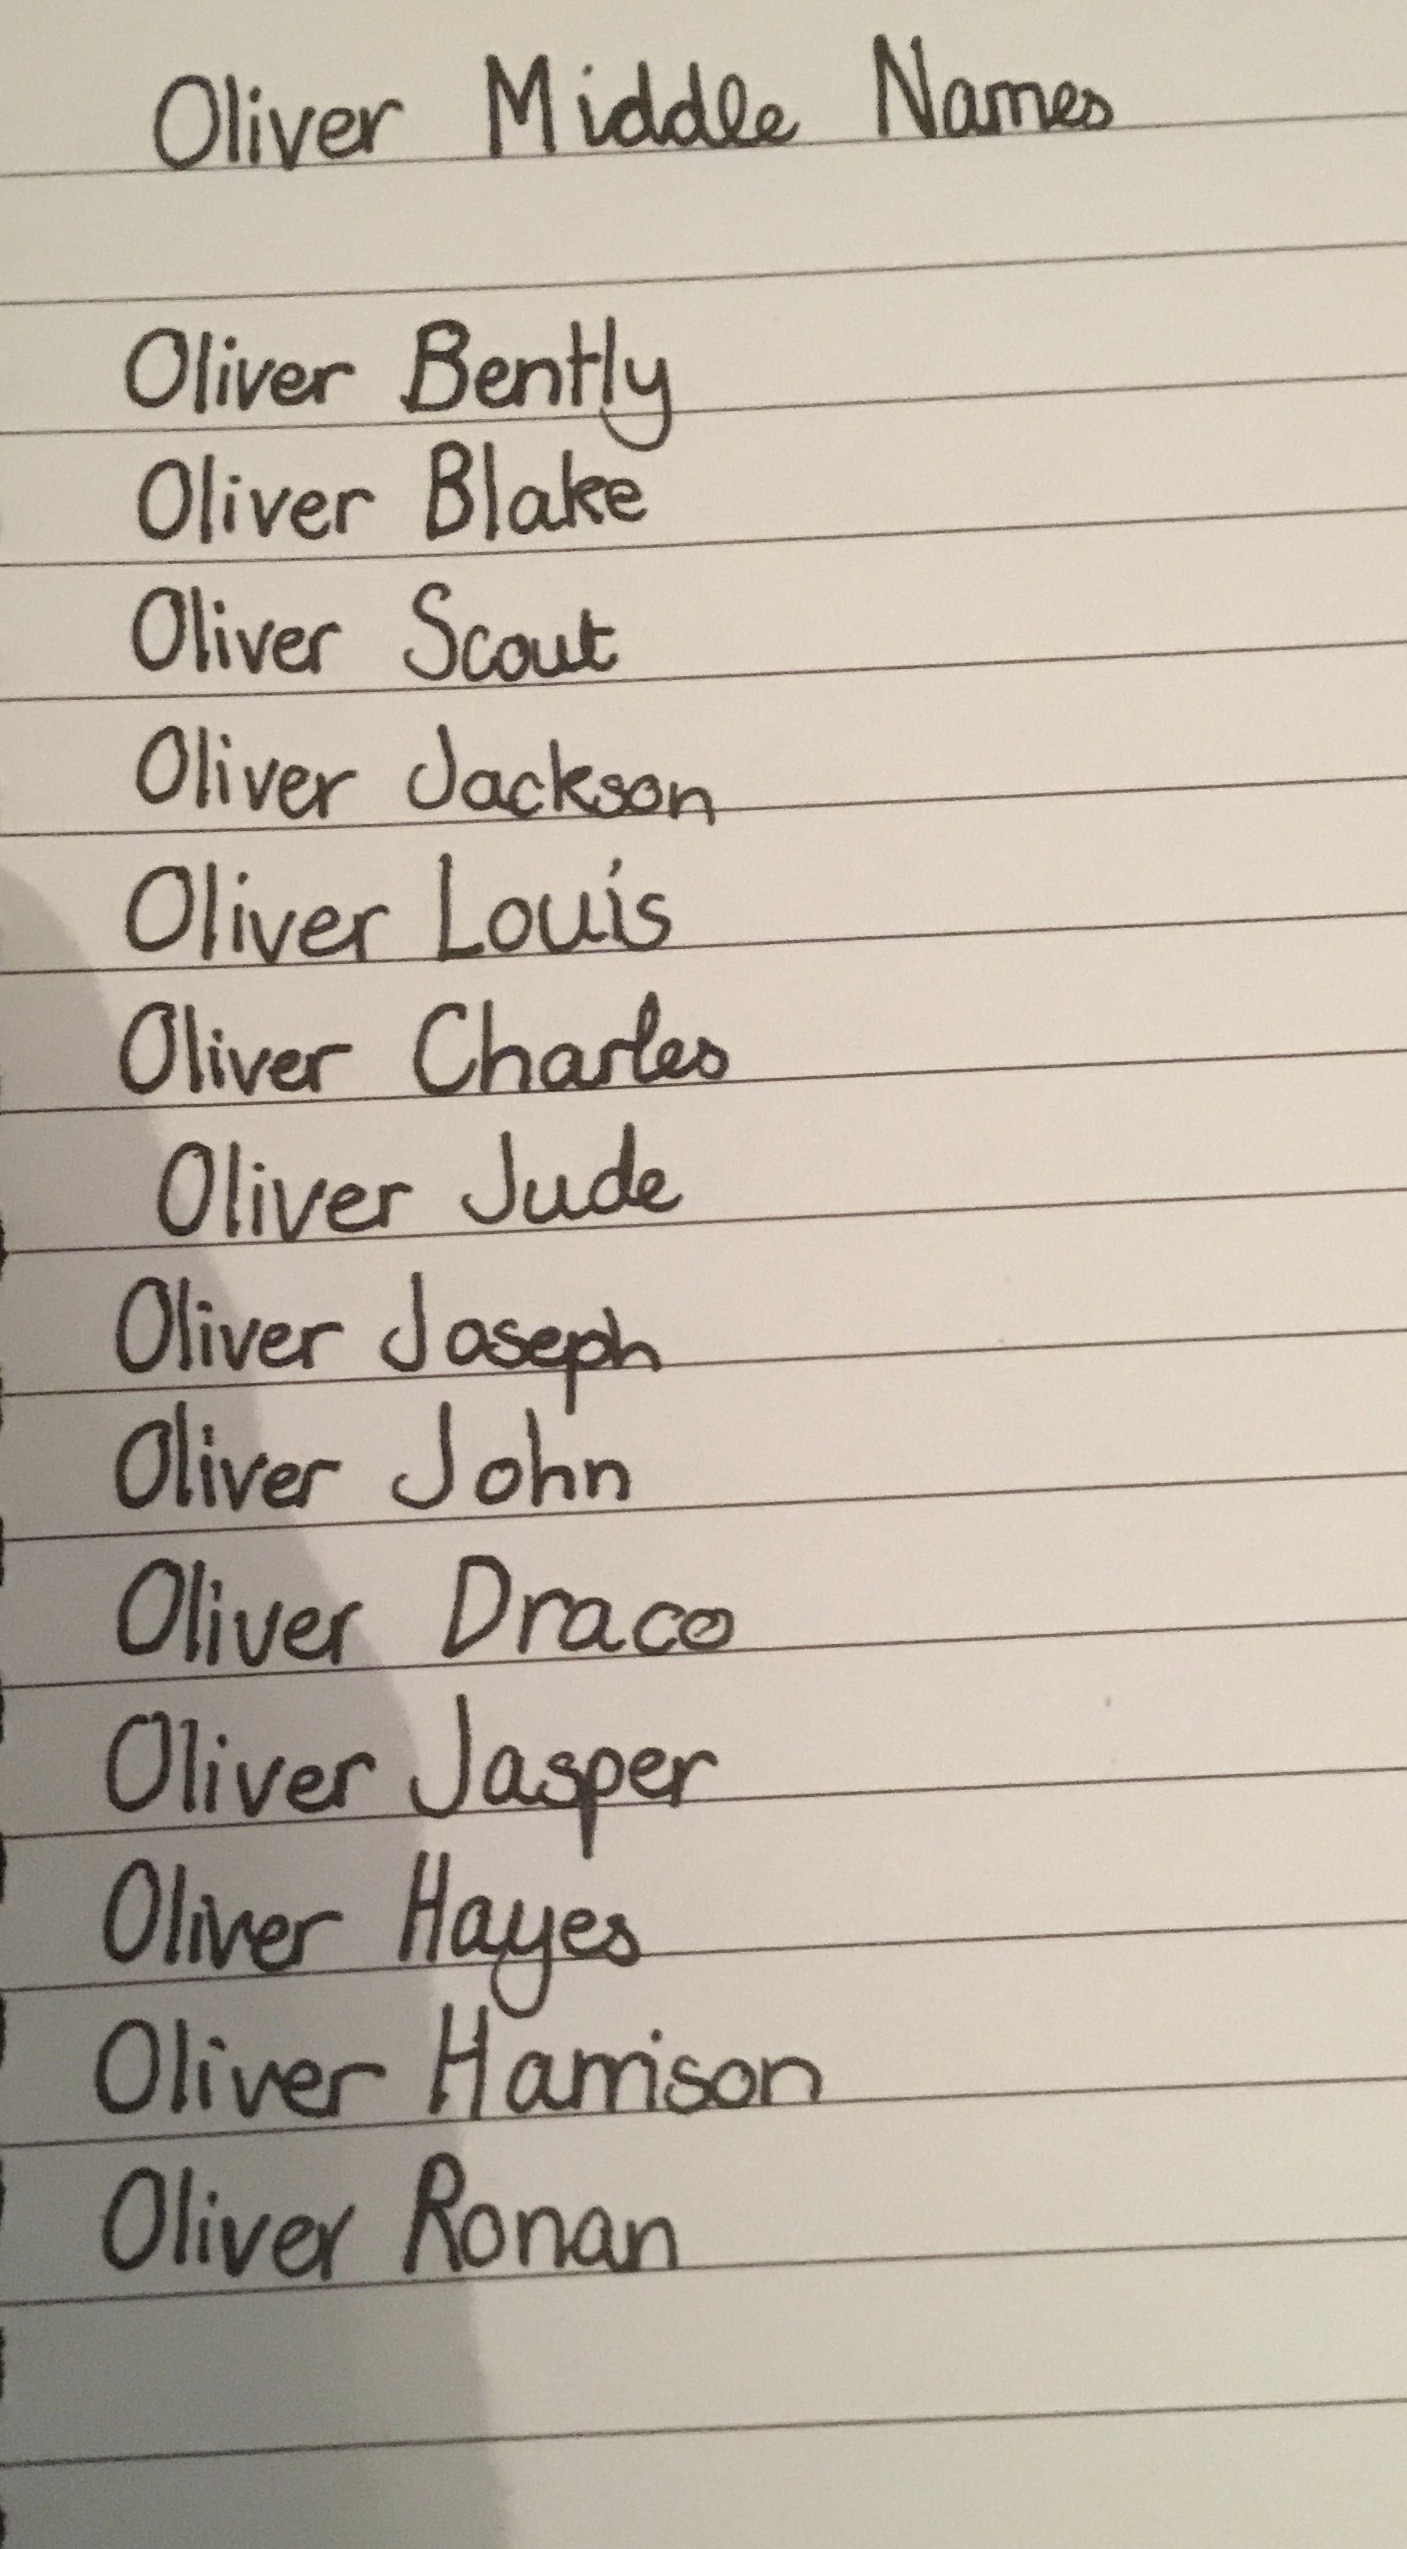 Oliver Middle Names
Oliver Bently
Oliver Blake
Oliver Scout
Oliver Jackson
Oliver Louis
Oliver Charles
Oliver Jude
Oliver Joseph
Oliver John
Oliver Draco
Oliver Jasper
Oliver Hayes
Oliver Harrison
Oliver Ronan